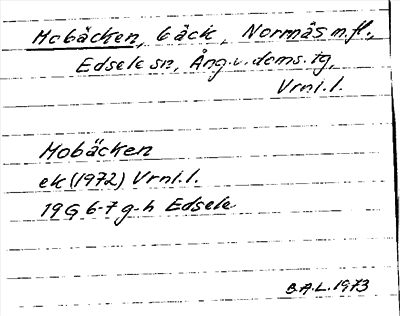 Mobäcken, bäck, Normås m.fl.,
Edsele sn, Ång. v. doms. tg,
Vrnl. l.
Mobäcken
ek (1972) Vrnl. l.
19G 6-7 g-h Edsele
B.A.L. 1973